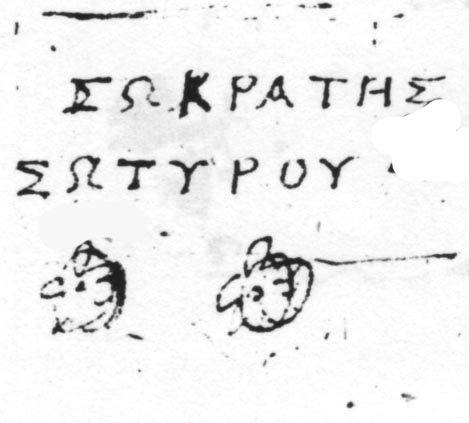 ΣΩΚΡΑΤΗΣ
ΣΩΤΥΡΟΥ